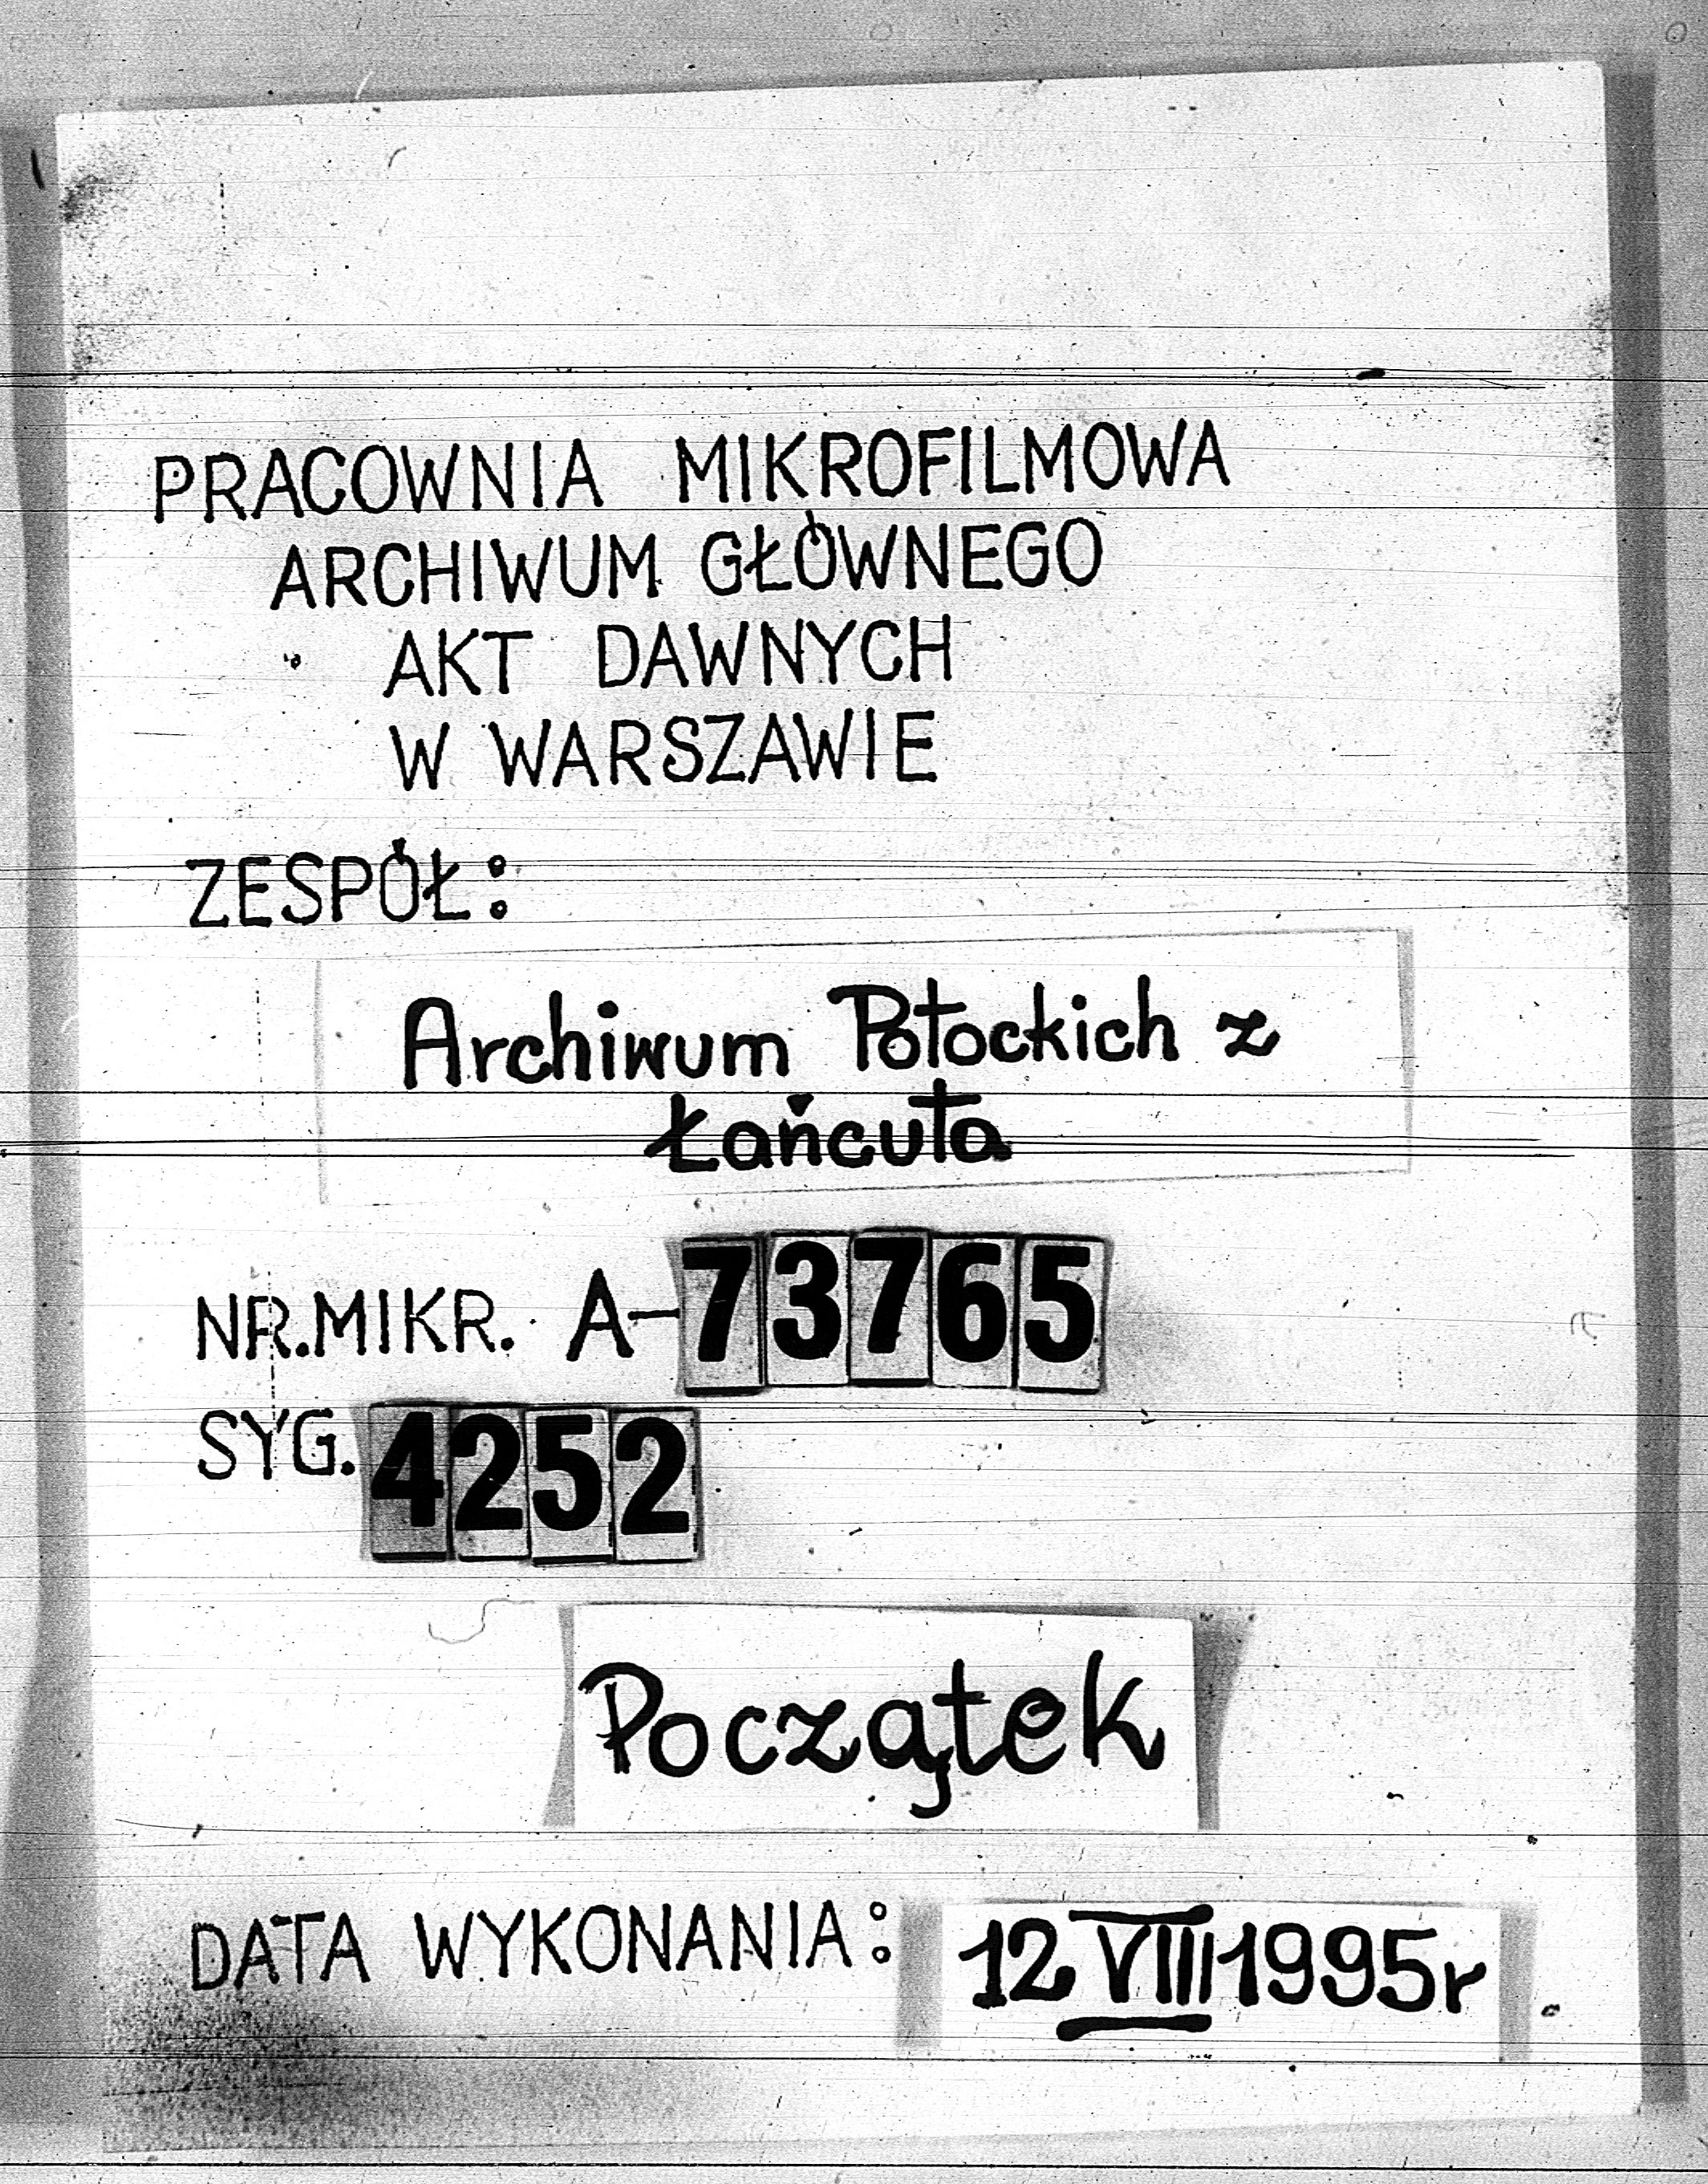 PRACOWNIA MIKROFILMOWA
ARCHIWUM GŁÓWNEGO
AKT DAWNYCH
W WARSZAWIE
ZESPÓŁ:
Archiwum Potockich z
Łańcuta
NR.MIKR. A-73765
SYG. 4252
Początek
DATA WYKONANIA: 12 VIII 1995r.